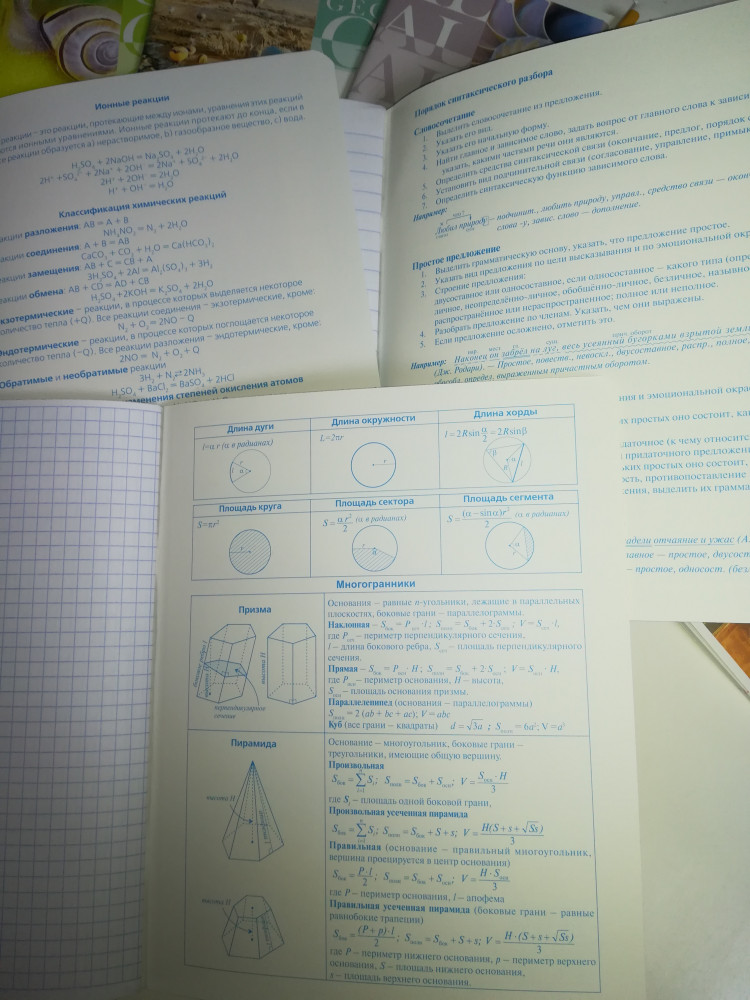 GEO
AL
Ионные реакции
реакции – это реакции, протекающие между ионами, уравнения этих реакций
ионными уравнениями. Ионные реакции протекают до конца, если в
реакции образуется а) нерастворимое, b) газообразное вещество, с) вода.
H₂SO₄ + 2NaOH = Na₂SO₄ + 2H₂O
2H⁺ + SO₄²⁻ + 2Na⁺ + 2OH⁻ = 2Na⁺ + SO₄²⁻ + 2H₂O
2H⁺ + 2OH⁻ = 2H₂O
H⁺ + OH⁻ = H₂O
Классификация химических реакций
разложения: AB = A + B
NH₄NO₂ = N₂ + 2H₂O
соединения: A + B = AB
CaCO₃ + CO₂ + H₂O = Ca(HCO₃)₂
замещения: AB + C = CB + A
3H₂SO₄ + 2Al = Al₂(SO₄)₃ + 3H₂
обмена: AB + CD = AD + CB
H₂SO₄ +2KOH = K₂SO₄ + 2H₂O
Экзотермические – реакции, в процессе которых выделяется некоторое
количество тепла (+Q). Все реакции соединения – экзотермические, кроме:
N₂ + O₂ = 2NO – Q
Эндотермические – реакции, в процессе которых поглощается некоторое
количество тепла (−Q). Все реакции разложения – эндотермические, кроме:
2NO = N₂ + O₂ + Q
Обратимые и необратимые реакции
3H₂ + N₂ ⇄ 2NH₃
H₂SO₄ + BaCl₂ = BaSO₄ + 2HCl
изменения степеней окисления атомов
Порядок синтаксического разбора
Словосочетание
1. Выделить словосочетание из предложения.
2. Указать его вид.
3. Указать его начальную форму.
4. Найти главное и зависимое слово, задать вопрос от главного слова к
указать, какими частями речи они являются.
5. Определить средства синтаксической связи (окончание, предлог, порядок
6. Установить вид подчинительной связи (согласование, управление,
7. Определить синтаксическую функцию зависимого слова.
Например:
Любил природу – подчинит., любить природу, управл., средство связи –
слова -у, завис. слово – дополнение.
Простое предложение
1. Выделить грамматическую основу, указать, что предложение простое.
2. Указать вид предложения по цели высказывания и по эмоциональной
3. Строение предложения:
двусоставное или односоставное, если односоставное – какого типа
личное, неопределённо-личное, обобщённо-личное, безличное,
распространённое или нераспространенное; полное или неполное.
4. Разобрать предложение по членам. Указать, чем они выражены.
5. Если предложение осложнено, отметить это.
Например: Наконец он забрёл на луг, весь усеянный бугорками взрытой
(Дж. Родари). — Простое, повеств., невоскл., двусоставное, распр., полное,
обособл. определ. выраженным причастным оборотом.
ия и эмоциональной
х простых оно состоит,
даточное (к чему
придаточного
ких простых оно состоит,
ость, противопоставление
ения, выделить их
адели отчаяние и ужас
главное – простое,
– простое, односост.
Длина дуги Длина окружности Длина хорды
l=α r (α в радианах) L=2πr l = 2R sin α/2 = 2R sinβ
l α r r β α R l
Площадь круга Площадь сектора Площадь сегмента
S=πr² S = αr²/2 (α в радианах) S = (α − sin α)r²/2 (α в радианах)
r r α r α
Многогранники
Призма
боковое ребро l
высота H
высота H
перпендикулярное
сечение
Основания – равные n-угольники, лежащие в параллельных
плоскостях, боковые грани – параллелограммы.
Наклонная – Sбок = Pсеч · l ; Sполн = Sбок + 2·Sосн ; V = Sсеч · l,
где Pсеч – периметр перпендикулярного сечения,
l – длина бокового ребра, Sсеч – площадь перпендикулярного
сечения.
Прямая – Sбок = Pосн · H ; Sполн = Sбок + 2·Sосн ; V = Sосн · H,
где Pосн– периметр основания, H – высота,
Sосн – площадь основания призмы.
Параллелепипед (основания – параллелограммы)
Sполн = 2 (ab + bc + ac); V = abc
Куб (все грани – квадраты) d = √3a ; Sполн = 6a²; V = a³
Пирамида
высота H
высота H
Основание – многоугольник, боковые грани –
треугольники, имеющие общую вершину.
Произвольная
Sбок = ∑ Sᵢ; Sполн = Sбок + Sосн; V = Sосн · H/3
где Sᵢ – площадь одной боковой грани,
Произвольная усеченная пирамида
Sбок = ∑ Sᵢ; Sполн = Sбок + S + s; V = H(S + s + √Ss)/3
Правильная (основание – правильный многоугольник,
вершина проецируется в центр основания)
Sбок = P·l/2 ; Sполн = Sбок + Sосн; V = H · Sосн/3
где P – периметр основания, l – апофема
Правильная усеченная пирамида (боковые грани – равные
равнобокие трапеции)
Sбок = (P + p)·l/2 ; Sполн = Sбок + S + s; V = H·(S + s + √Ss)/3
где P – периметр нижнего основания, p – периметр верхнего
основания, S – площадь нижнего основания,
s – площадь верхнего основания.